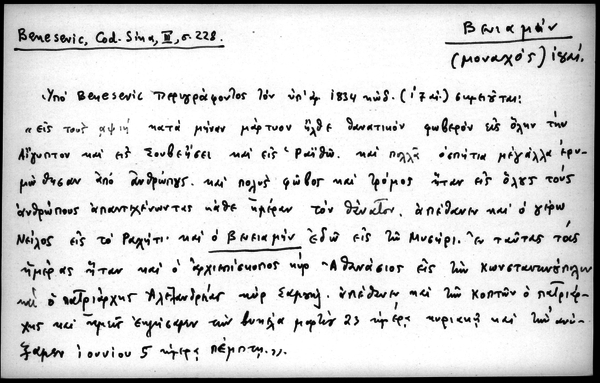 Benesevic, Cod. Sina, III, σ. 228.
Βενιαμὴν
(μοναχός)
Ὑπὸ Benesevic περιγράφοντος τὸν ὑπ' ἀρ. 1834 κώδ. (17 αἰ.) σημειοῦται:
«εἰς τοὺς αψιή κατὰ μῆναν μάρτυον ἦλθε θανατικὸν φωβερὸν εἰς ὅλην τὴν
Αἴγυπτον καὶ εἰς Σουβεήσει καὶ εἰς Ραϊθῶ. καὶ πολλὰ ὀσπήτια μεγάλλα ἐρη-
μώθησαν ἀπὸ ἀνθρώπους. καὶ πολὺς φῶβος καὶ τρόμος ἦταν εἰς ὅλους τοὺς
ἀνθρώπους ἀπαντεχένωντας κάθε ἡμέραν τὸν θάνατον. ἀπέθανεν καὶ ὁ γέρω
Νεῖλος εἰς τὸ Ραχήτι καὶ ὁ Βενειαμὴν ἐδῶ εἰς τὴ Μισήρι. Ἐν ταύταις ταῖς
ἡμέρας ἦταν καὶ ὁ ἀρχιεπίσκοπος κὺρ Ἀθανάσιος εἰς τὴν Κωνσταντινούπολιν
καὶ ὁ πατριάρχης Ἀλεξανδρείας κὺρ Σαμουήλ. ἀπέθανεν καὶ τῶν κοπτῶν ὁ πατριάρ-
χης καὶ ἡμεῖς τὴν μαρτίου 23 ἡμέρᾳ κυριακῇ καὶ τὴν ἀνύ-
ξαμεν ἰουνίου 5 ἡμέρᾳ πέμπτῃ.».